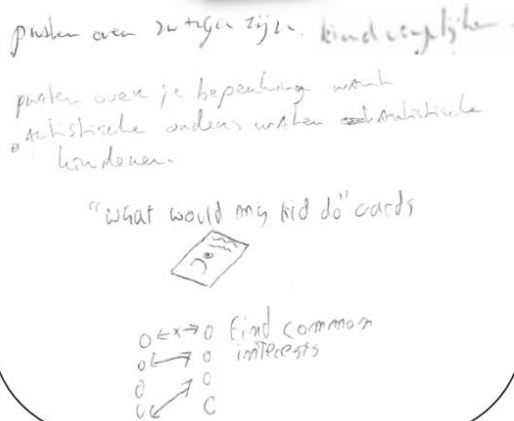 praten over zwanger zijn. kind vergelijken.
praten over je beperking want
autistische ouders weten autistische
kinderen.
"what would my kid do" cards
Find common
interests